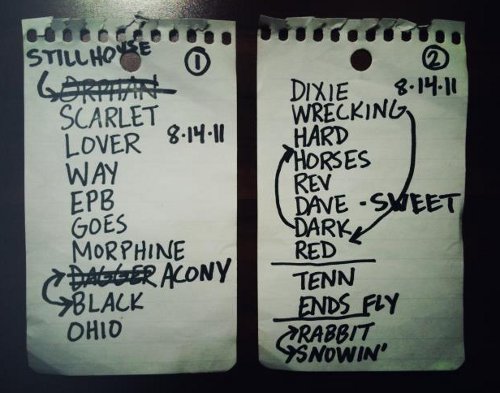 STILLHOUSE
1
ORPHAN
SCARLET
LOVER 8·14·11
WAY
EPB
GOES
MORPHINE
DAGGER ACONY
BLACK
OHIO
2
DIXIE 8·14·11
WRECKING
HARD
HORSES
REV
DAVE - SWEET
DARK
RED
TENN
ENDS FLY
RABBIT
SNOWIN'